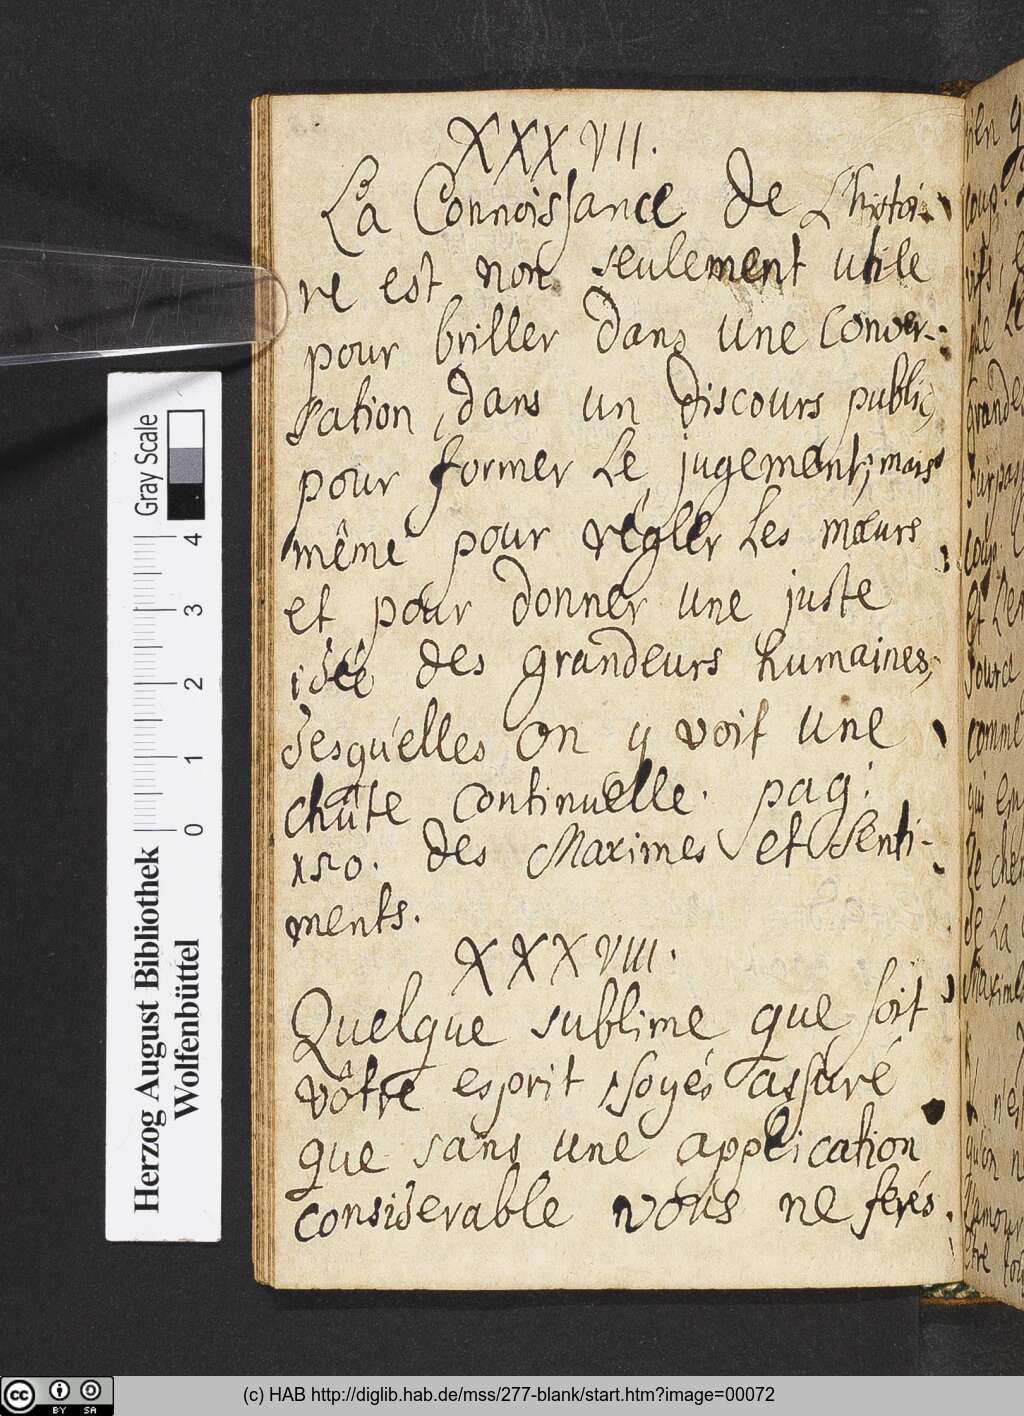 XXXVII.
La Connoissance de L'histoi-
re est non seulement utile
pour briller dans une Conver-
sation, dans un discours public,
pour former Le jugement, mais
même pour régler Les mœurs
et pour donner une juste
idée des grandeurs humaines,
desqu'elles on y voit une
chûte continuelle. pag:
150. des Maximes et Senti-
ments.
XXXVIII.
Quelque sublime que soit
vôtre esprit soyés assuré
que sans une application
considerable vous ne ferés
Gray Scale
0 1 2 3 4
Herzog August Bibliothek
Wolfenbüttel
cc BY SA
(c) HAB http://diglib.hab.de/mss/277-blank/start.htm?image=00072